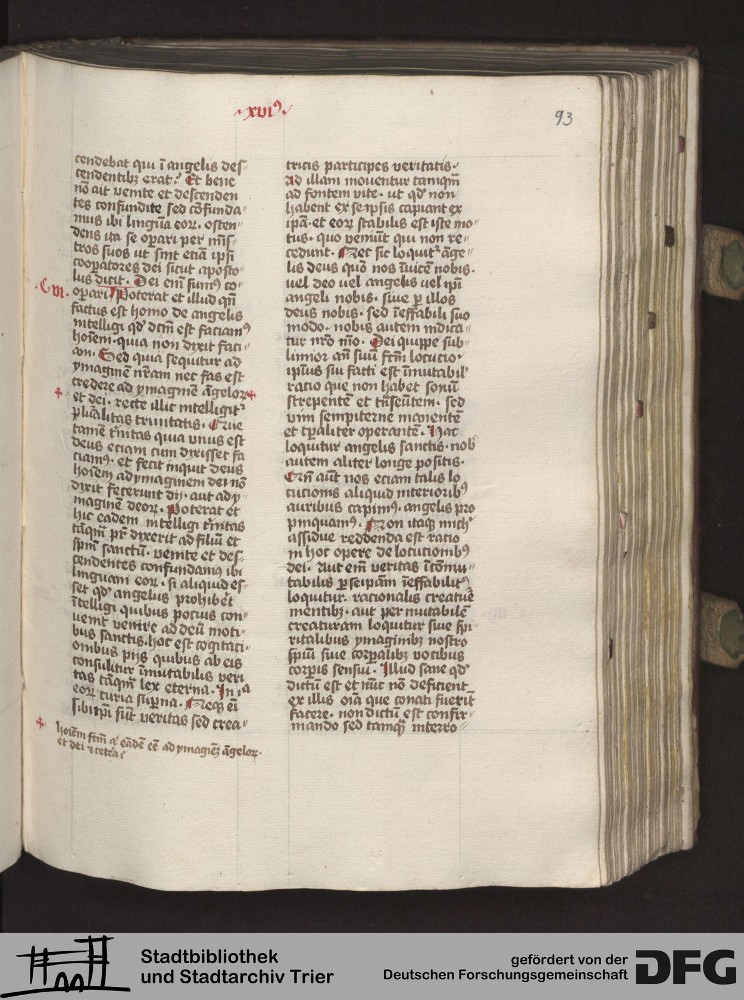 xviꝰ
93
cendebat qui ī angelis des
cendentibꝫ erat? Et bene
nō ait venite et descenden
tes confundite sed cōfunda
mus ibi linguā eorꝝ. osten
dens ita se op̄ari per mīs
tros suos ut sint etiā ipsi
cooꝑatores dei sicut aposto
lus dicit. Dei em̄ sumꝰ co
.Cvi. oꝑari Poterat et illud qn̄
factus est homo de angelis
intelligi qd̓ dc̄m est faciamꝰ
hoīem. quia non dixit faci
am. Sed quia sequitur ad
ymaginē nr̄am nec fas est
credere ad ymaginē āgelorꝝ
et dei. recte illic intelligit᷑
pluralitas trinitatis. Que
tamē tr̄nitas quia vnus est
deus eciam cum dixisset fa
ciamꝰ. et fecit inquit deus
hoīem ad ymaginem dei nō
dixit fecerunt dij. aut ad y
maginē deorꝝ. Poterat et
hic eadem intelligi tr̄nitas
tāqm̄ pr̄ dixerit ad filiū et
sp̄m sanctū. venite et des
cendentes confundamꝰ ibi
linguam eorꝝ. si aliquid es
set qd̓ angelus prohibet
ītelligi quibus pocius con
uenit venire ad deū moti
bus sanctis. hoc est cogitaci
onibus pijs quibus ab eis
consulitur īmutabilis veri
tas tāqm̄ lex eterna. In illa
eorꝝ curia suꝑna. Neqꝫ em̄
sibi ipi sūt veritas sed crea
hoīem fcm̄ eādē ee ad ymaginē āgelorꝝ.
et dei ⁊ cetera
tricis participes veritatis.
Ad illam mouentur tamqm̄
ad fontem vite. ut qd̓ non
habent ex se ipsis capiant ex
ipā. et eorꝝ stabilis est iste mo
tus. quo veniūt qui non re
cedunt. Nec sic loquit᷑ āge
lis deus quō nos īuicē nobis.
vel deo vel angelis vel ipī
angeli nobis. siue ꝑ illos
deus nobis. sed īeffabili suo
modo. nobis autem indica
tur nr̄o mō. Dei quippe sub
limior an̄ suū fcm̄ locucio.
ipīus sui facti est īmutabil
racio que non habet sonū
strepentē et trāseūtem. sed
vim sempiterne manentē
et tꝑaliter operantē. Hac
loquitur angelis sanctis. nob
autem aliter longe positis.
Cū aūt nos eciam talis lo
cucionis aliquid interioribꝰ
auribus capimꝰ. angelis pro
pinquamꝰ. Non itaqꝫ mich
assidue reddenda est racio
in hoc opere de locucionibꝰ
dei. Aut em̄ veritas īcōmu
tabilis ꝑ se ipam īeffabilitꝰ
loquitur. racionalis creature
mentibꝫ. aut per mutabilē
creaturam loquitur siue spi
ritalibus ymaginibꝫ nostro
spūi siue corꝑalibꝫ vocibus
corpis sensui. Illud sane qd̓
dictū est et nūc nō deficient
ex illis oīa que conati fuerīt
facere. non dictū est confir
mando sed tamqꝫ interro
Stadtbibliothek
und Stadtarchiv Trier
gefördert von der
Deutschen Forschungsgemeinschaft
DFG